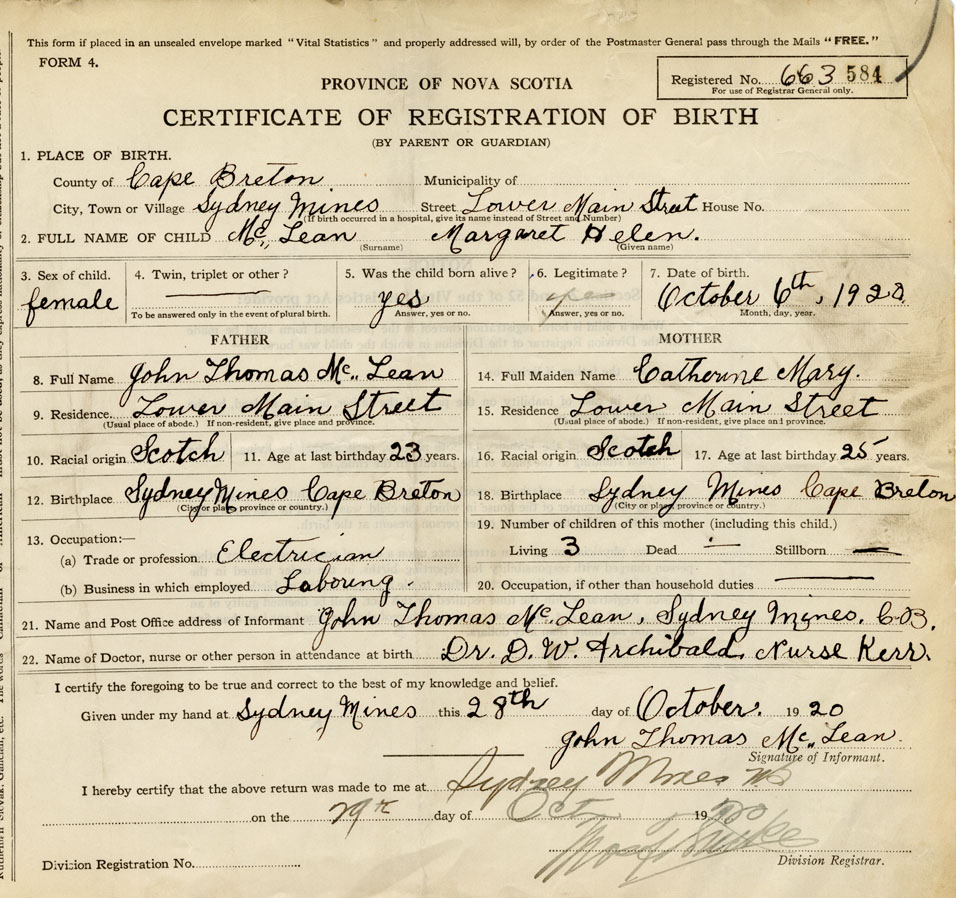 This form if placed in an unsealed envelope marked "Vital Statistics" and properly addressed will, by order of the Postmaster General pass through the Mails "FREE."
FORM 4.
Registered No. 663 584
For use of Registrar General only.
PROVINCE OF NOVA SCOTIA
CERTIFICATE OF REGISTRATION OF BIRTH
(BY PARENT OR GUARDIAN)
1. PLACE OF BIRTH.
County of Cape Breton Municipality of
City, Town or Village Sydney Mines Street Lower Main Street House No.
(If birth occurred in a hospital, give its name instead of Street and Number)
2. FULL NAME OF CHILD Mc Lean Margaret Helen.
(Surname) (Given name)
3. Sex of child. 4. Twin, triplet or other? 5. Was the child born alive? 6. Legitimate? 7. Date of birth.
female yes yes October 6th, 1920
To be answered only in the event of plural birth. Answer, yes or no. Answer, yes or no. Month, day, year.
FATHER MOTHER
8. Full Name John Thomas Mc Lean 14. Full Maiden Name Catherine Mary.
9. Residence. Lower Main Street 15. Residence Lower Main Street
(Usual place of abode.) If non-resident, give place and province. (Usual place of abode.) If non-resident, give place and province.
10. Racial origin Scotch 11. Age at last birthday 23 years. 16. Racial origin Scotch 17. Age at last birthday 25 years.
12. Birthplace Sydney Mines Cape Breton 18. Birthplace Sydney Mines Cape Breton
(City or place, province or country.) (City or place, province or country.)
13. Occupation:— 19. Number of children of this mother (including this child.)
(a) Trade or profession Electrician Living 3 Dead — Stillborn —
(b) Business in which employed Laboring. 20. Occupation, if other than household duties
21. Name and Post Office address of Informant John Thomas Mc Lean, Sydney Mines. C.B.
22. Name of Doctor, nurse or other person in attendance at birth Dr. D. W. Archibald, Nurse Kerr.
I certify the foregoing to be true and correct to the best of my knowledge and belief.
Given under my hand at Sydney Mines this 28th day of October. 1920
John Thomas Mc Lean.
Signature of Informant.
I hereby certify that the above return was made to me at Sydney Mines
on the 29th day of Oct 1920
Division Registration No. Division Registrar.